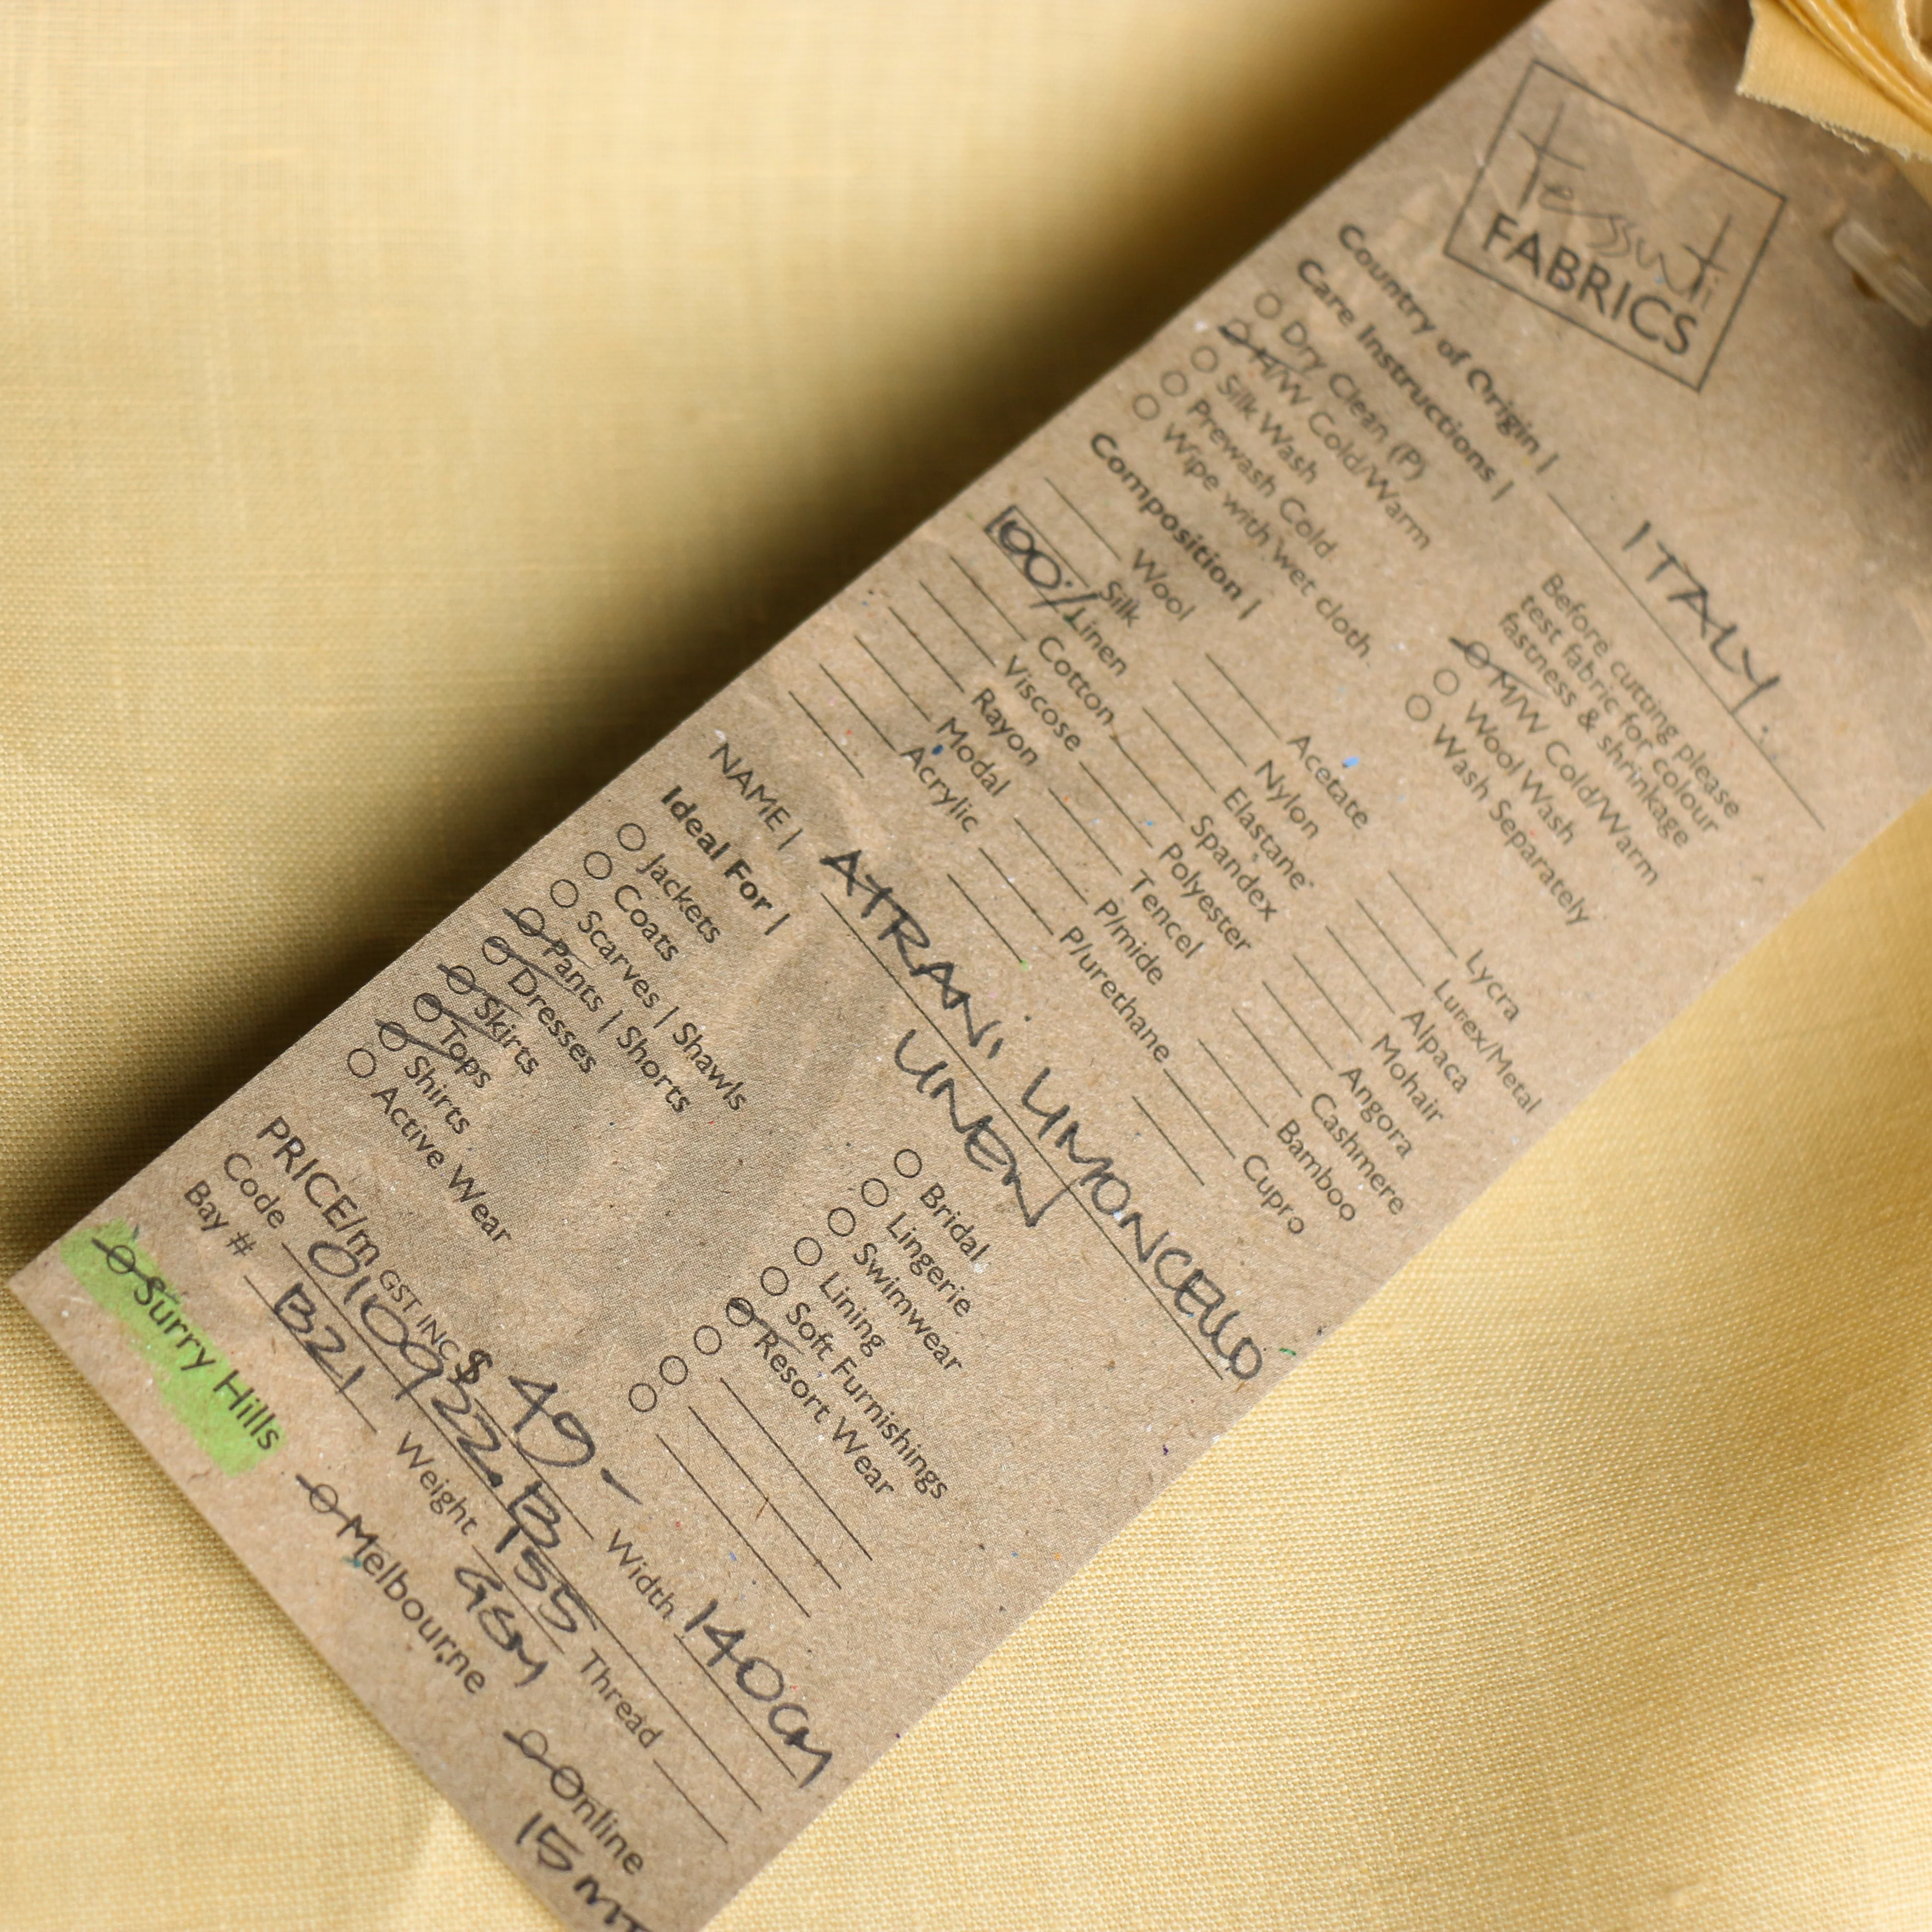 Tessuti
FABRICS
Country of Origin | ITALY.
Care Instructions |
Dry Clean (P)
H/W Cold/Warm
Silk Wash
Prewash Cold
Wipe with wet cloth
Before cutting please
test fabric for colour
fastness & shrinkage
M/W Cold/Warm
Wool Wash
Wash Separately
Composition |
Wool
Silk
100% Linen
Cotton
Viscose
Rayon
Modal
Acrylic
Acetate
Nylon
Elastane
Spandex
Polyester
Tencel
P/mide
P/urethane
Lycra
Lurex/Metal
Alpaca
Mohair
Angora
Cashmere
Bamboo
Cupro
NAME | ATRANI LIMONCELLO
LINEN
Ideal For |
Jackets
Coats
Scarves | Shawls
Pants | Shorts
Dresses
Skirts
Tops
Shirts
Active Wear
Bridal
Lingerie
Swimwear
Lining
Soft Furnishings
Resort Wear
PRICE/m GST INC $ 49-
Width 140CM
Code 010922.B
Bay # B21
Weight 155
GSM
Thread
Surry Hills
Melbourne
Online
15 MT